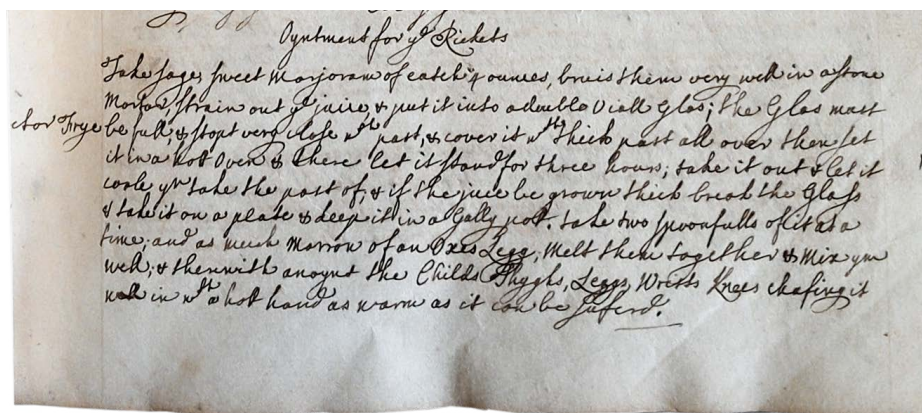 Oyntment for ye Rickets
Take sage, sweet Marjoram of eatch 4 ounces, bruis them very well in a stone
Mortar, strain out ye juice, & put it into a duble Viall Glas; the Glas must
ctor Frye be full, & stopt very close wth past, & cover it wth thick past all over then set
it in a hott Oven & there let it stand for three hours; take it out & let it
coole yn take the past of, & if the juce be grown thick break the Glass
& take it on a plate & keep it in a Gally pott. take two spoonfulls of it at a
time, and as much Marrow of an Oxes Legg, Melt them together & Mix ym
well, & therewith anoynt the Childs Thyghs, Leggs, Wrists Knees chafing it
well in wth a hott hand as warm as it can be suferd.